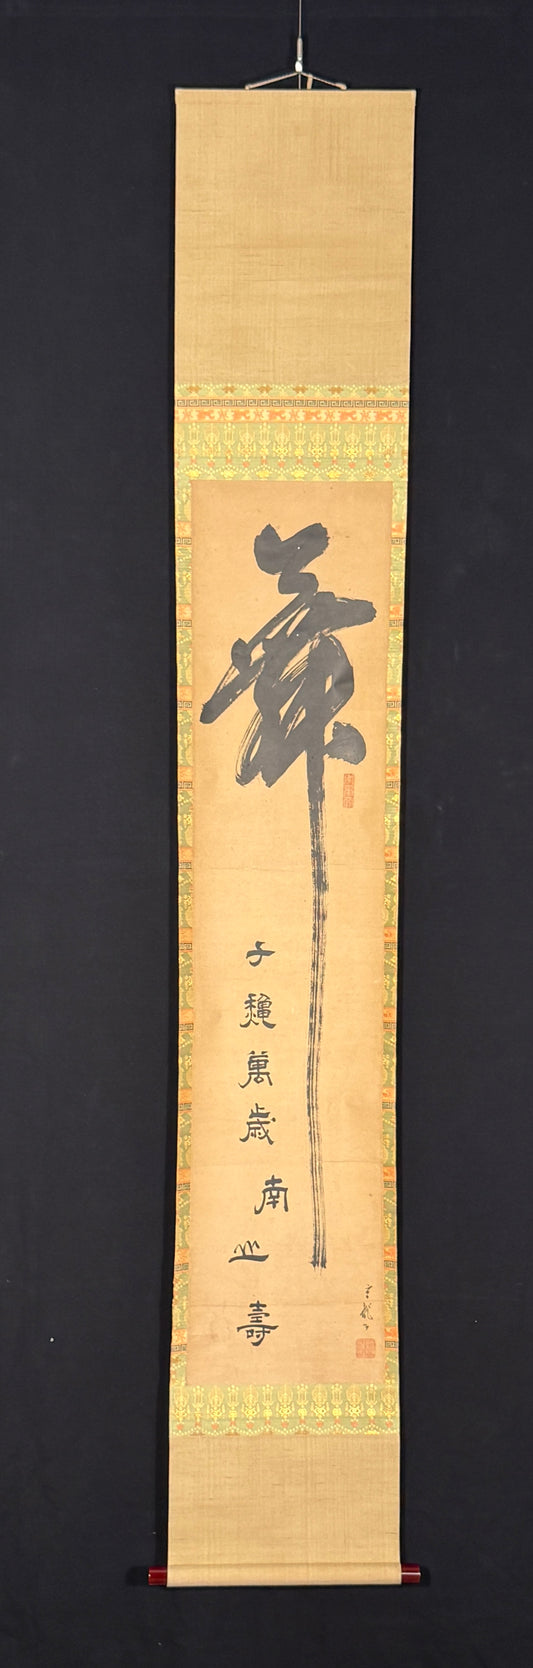 舞
千穐萬歳
南山壽